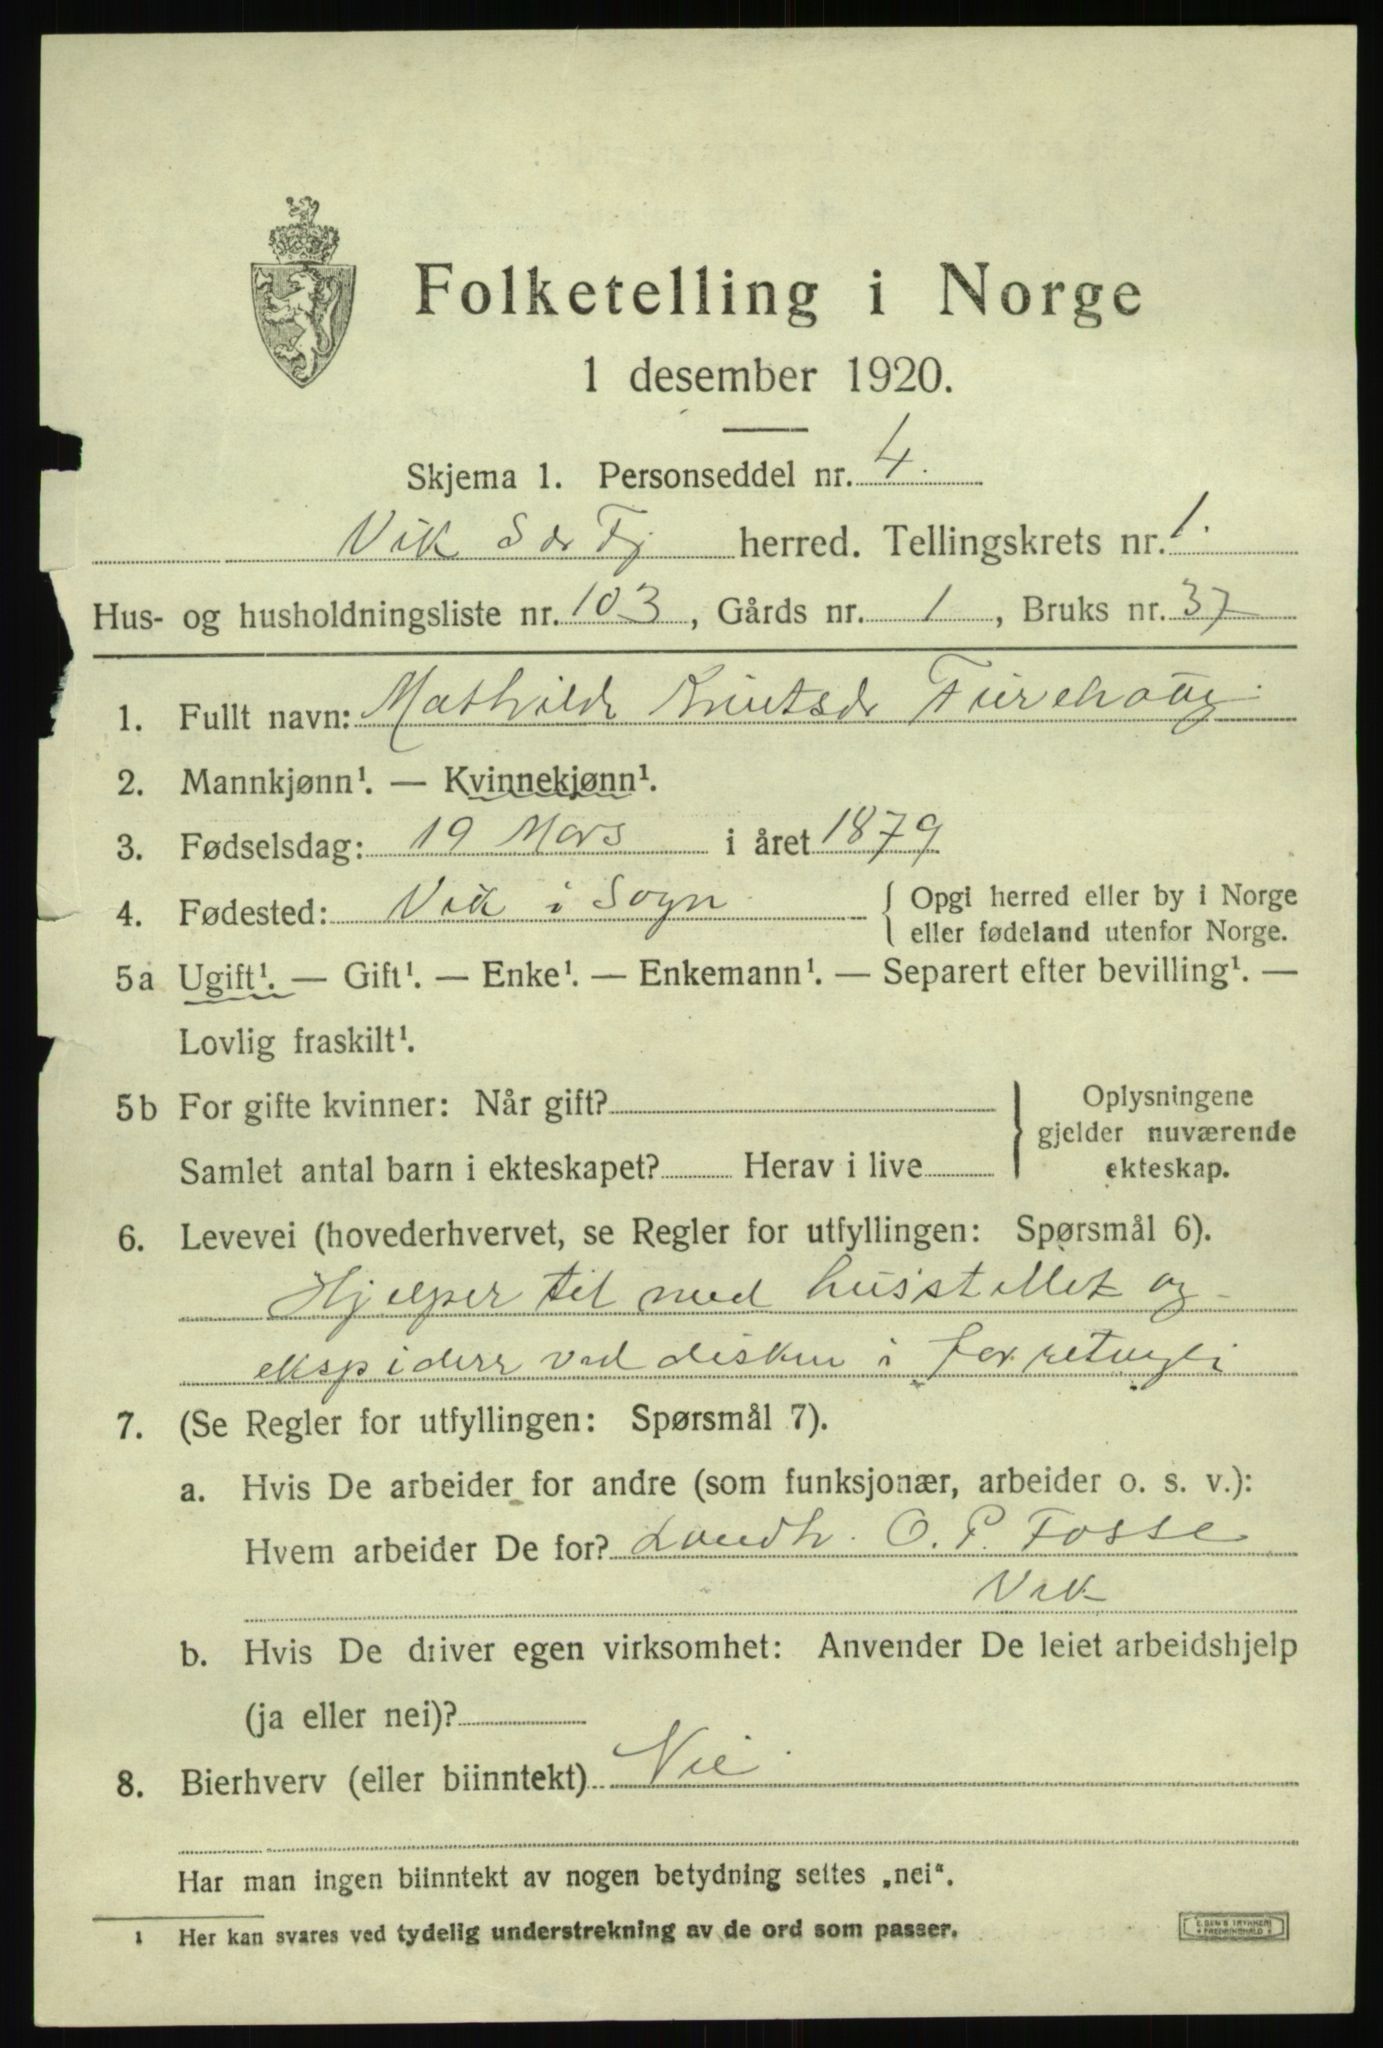 Folketelling i Norge
1 desember 1920.
Skjema 1. Personseddel nr. 4.
Vik S og Fj herred. Tellingskrets nr. 1.
Hus- og husholdningsliste nr. 103, Gårds nr. 1, Bruks nr. 37
1. Fullt navn: Mathilde Knutsdr Turehaug
2. Mannkjønn¹. — Kvinnekjønn¹.
3. Fødselsdag: 19 Mars i året 1879
4. Fødested: Vik i Sogn { Opgi herred eller by i Norge
eller fødeland utenfor Norge.
5a Ugift¹. — Gift¹. — Enke¹. — Enkemann¹. — Separert efter bevilling¹. —
Lovlig fraskilt¹.
5b For gifte kvinner: Når gift? } Oplysningene
gjelder nuværende
Samlet antal barn i ekteskapet? Herav i live ekteskap.
6. Levevei (hovederhvervet, se Regler for utfyllingen: Spørsmål 6).
Hjelper til med husstellet og
ekspiderer ved disken i
7. (Se Regler for utfyllingen: Spørsmål 7).
a. Hvis De arbeider for andre (som funksjonær, arbeider o. s. v.):
Hvem arbeider De for? Landh. O. P. Fosse
Vik
b. Hvis De driver egen virksomhet: Anvender De leiet arbeidshjelp
(ja eller nei)?
8. Bierhverv (eller biinntekt) Nei
Har man ingen biinntekt av nogen betydning settes „nei“.
¹ Her kan svares ved tydelig understrekning av de ord som passer.
E. SEM'S TRYKKERI
* FREDRIKSHALD *